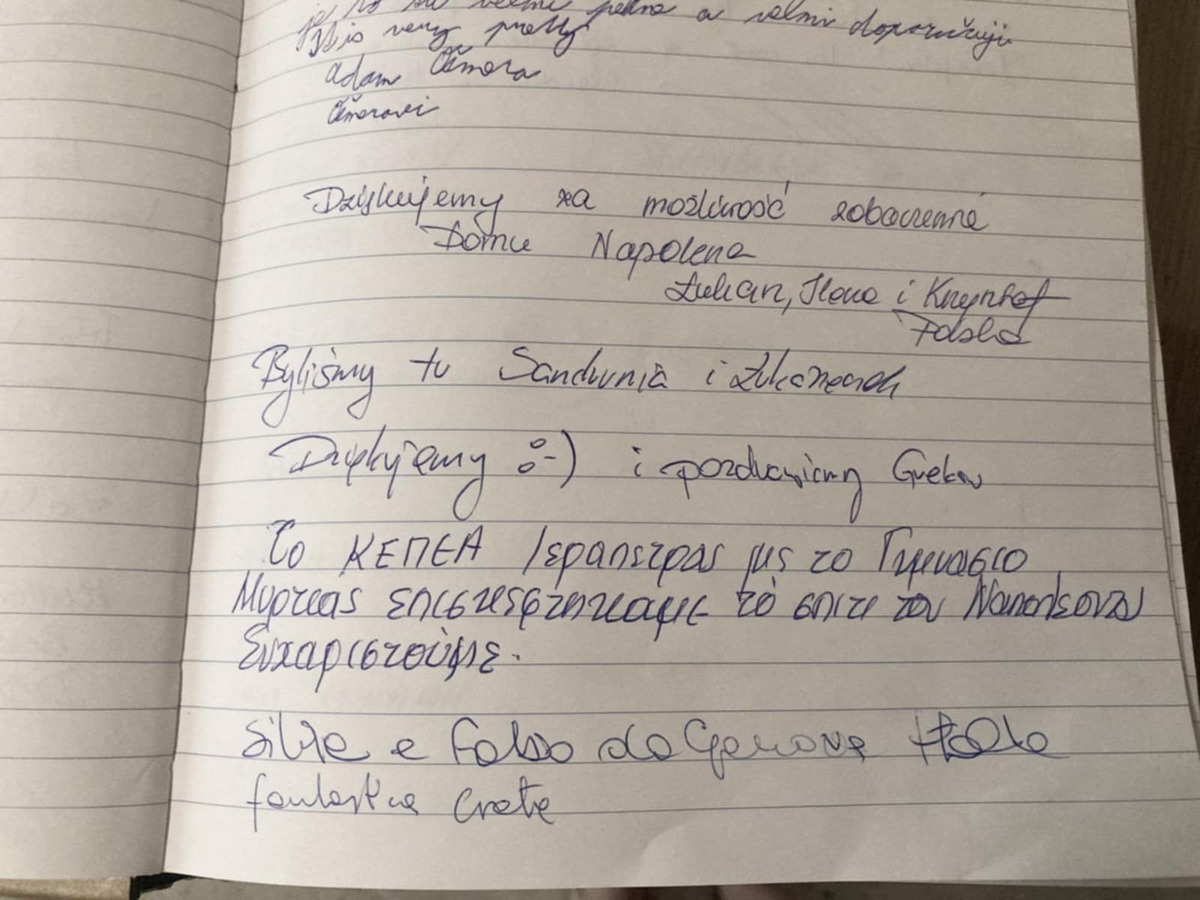 je to tu velmi pekne a velmi doporučuji
It is very pretty
Adam Čmora
Čmorovi
Dziękujemy za możliwość zobaczenia
Domu Napolena
Łukasz, Ilona i Krzysztof
Polska
Byliśmy tu Sandunia i
Dziękujemy :-) i pozdrawiamy Greków
Το ΚΕΠΕΑ Ιεραπετρας με το Γυμνασιο
Μυρτιας επισκεφτηκαμε το σπιτι του Ναπολεοντα
Ευχαριστούμε.
Silvia e Fabio da Genova Italia
fantastica Creta